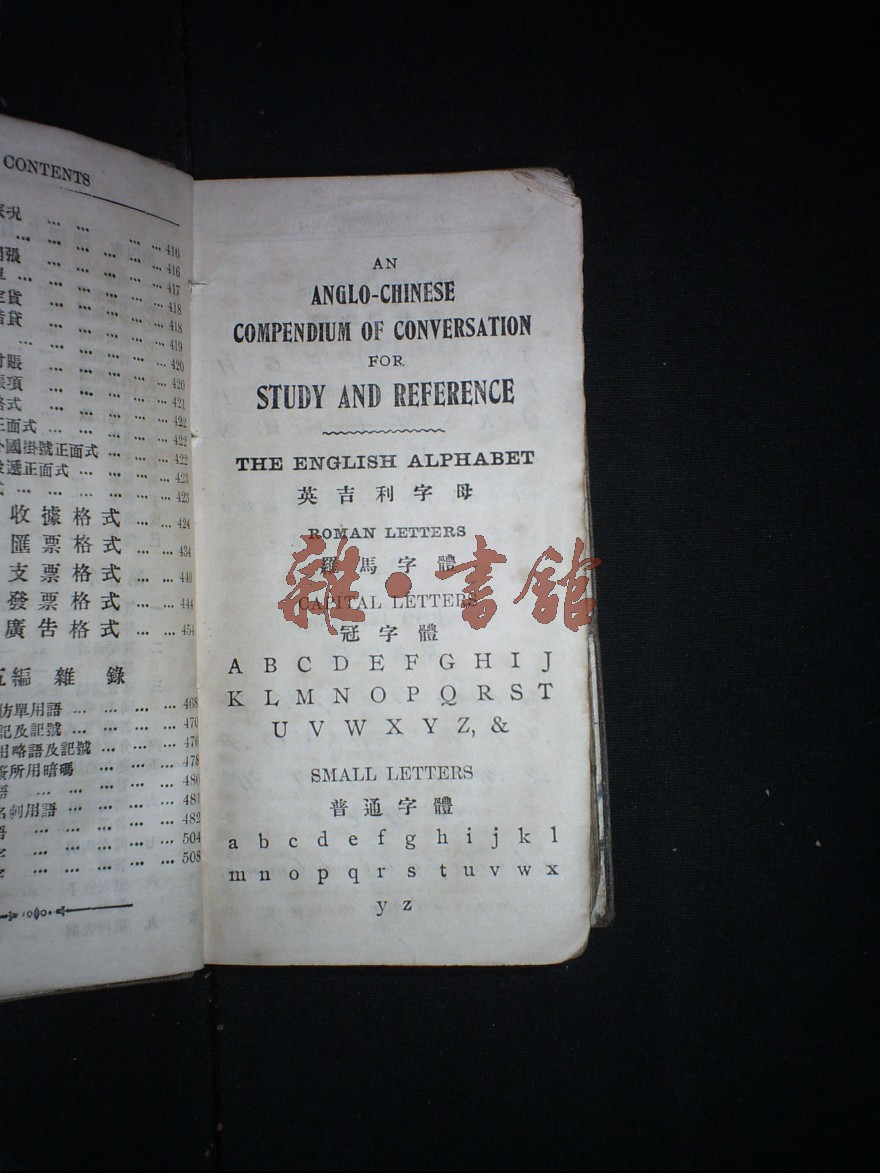 CONTENTS
況 ... ... ... ... 416
... ... ... 416
張 ... ... ... 417
... ... ... 418
貨 ... ... ... 418
貸 ... ... ... 419
... ... ... 420
賬 ... ... ... 420
項 ... ... ... 421
格式 ... ... ... 422
正面式 ... ... ... 422
外國掛號正面式 ... ... 422
遞正面式 ... ... ... 423
式 ... ... ... ... 423
收據格式 ... ... 424
匯票格式 ... ... 434
支票格式 ... ... 440
發票格式 ... ... 444
廣告格式 ... ... 454
五編 雜 錄
仿單用語 ... ... ... 468
記及記號 ... ... ... 470
用略語及記號 ... ... 476
所用暗碼 ... ... ... 478
語 ... ... ... ... 480
名刺用語 ... ... ... 481
語 ... ... ... ... 482
字 ... ... ... ... 504
... ... ... ... 508
AN
ANGLO-CHINESE
COMPENDIUM OF CONVERSATION
FOR
STUDY AND REFERENCE
THE ENGLISH ALPHABET
英吉利字母
ROMAN LETTERS
羅馬字體
雜·書館
CAPITAL LETTERS
冠字體
A B C D E F G H I J
K L M N O P Q R S T
U V W X Y Z, &
SMALL LETTERS
普通字體
a b c d e f g h i j k l
m n o p q r s t u v w x
y z